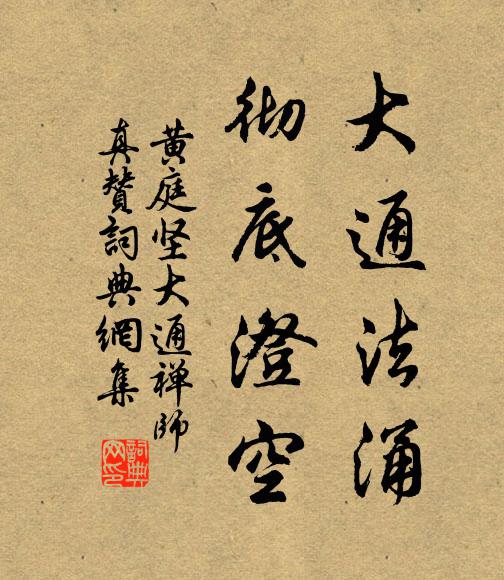 大通法涌
彻底澄空
黄庭坚大通禅师
真赞詞典網集
詞典网印